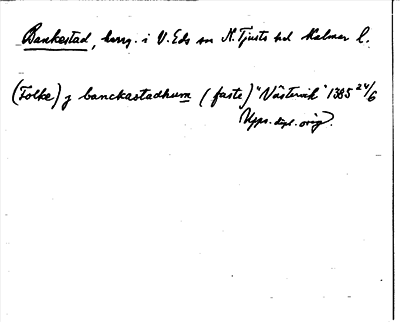 Bankestad, herrg. i V. Eds sn N. Tjusts hd Kalmar l.
(Folke) j banckastadhum (faste) "Västervik" 1385 24/6
Upps. dipl. orig.